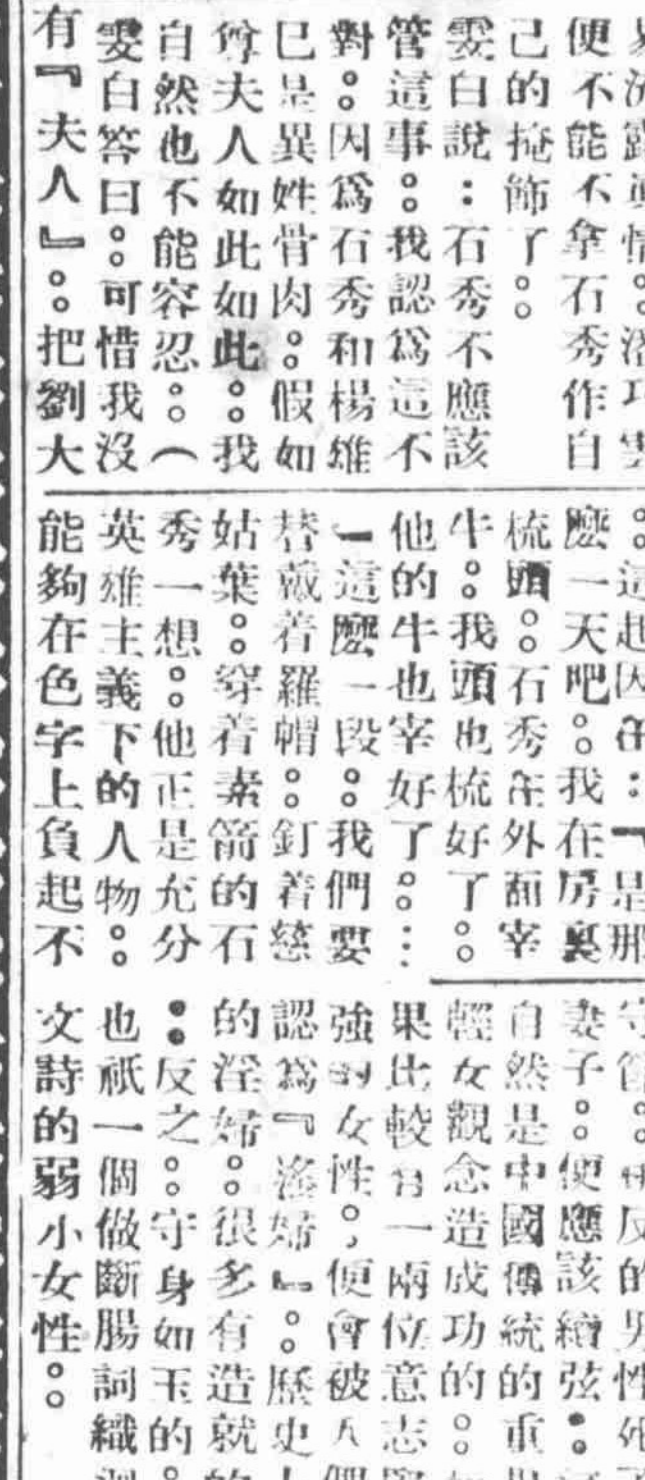 便不能不拿石秀作自
己的掩飾了。
雯白說:石秀不應該
管這事。我認爲這不
對。因爲石秀和楊雄
已是異姓骨肉。假如
尊夫人如此如此。我
自然也不能容忍。(
雯白答曰。可惜我沒
有『夫人』。把劉大
。這起因在:『是那
麼一天吧。我在房裏
梳頭。石秀在外面宰
牛。我頭也梳好了。
他的牛也宰好了。…
』這麼一段。我們要
替戴着羅帽。釘着慈
姑葉。穿着素箭的石
秀一想。他正是充分
英雄主義下的人物。
能夠在色字上負起不
反的男性死
妻子。便應該續弦。
自然是中國傳統的重
輕女觀念造成功的。
果比較有一兩位意志
強的女性。便會被人們
認爲『淫婦』。歷史
的淫婦。很多有造就的
。反之。守身如玉的。
也祇一個做斷腸詞織
文詩的弱小女性。